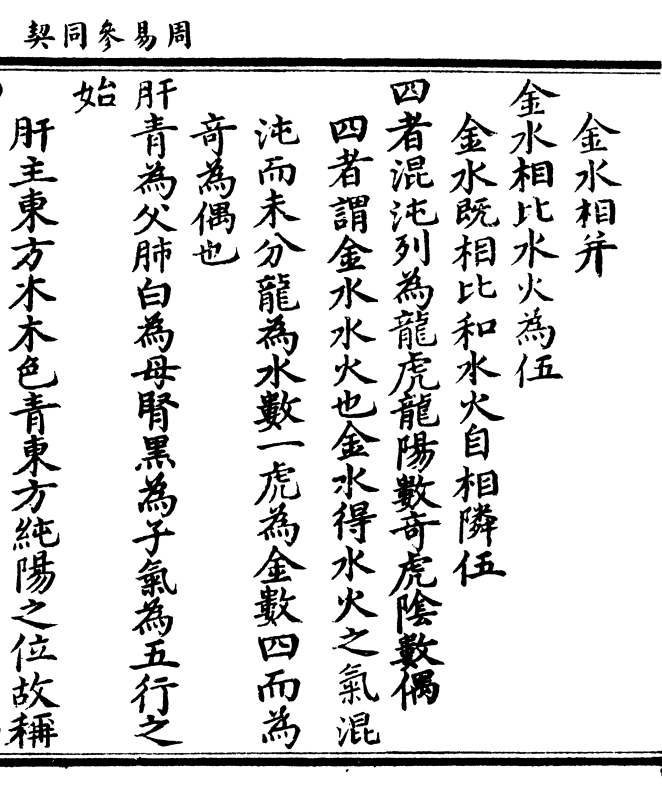 周易參同契
金水相并
金水相比水火為伍
金水既相比和水火自相隣伍
四者混沌列為龍虎龍陽數竒虎陰數偶
四者謂金水水火也金水得水火之氣混
沌而未分龍為水數一虎為金數四而為
竒為偶也
肝青為父肺白為母腎黑為子氣為五行之
始
肝主東方木木色青東方純陽之位故稱